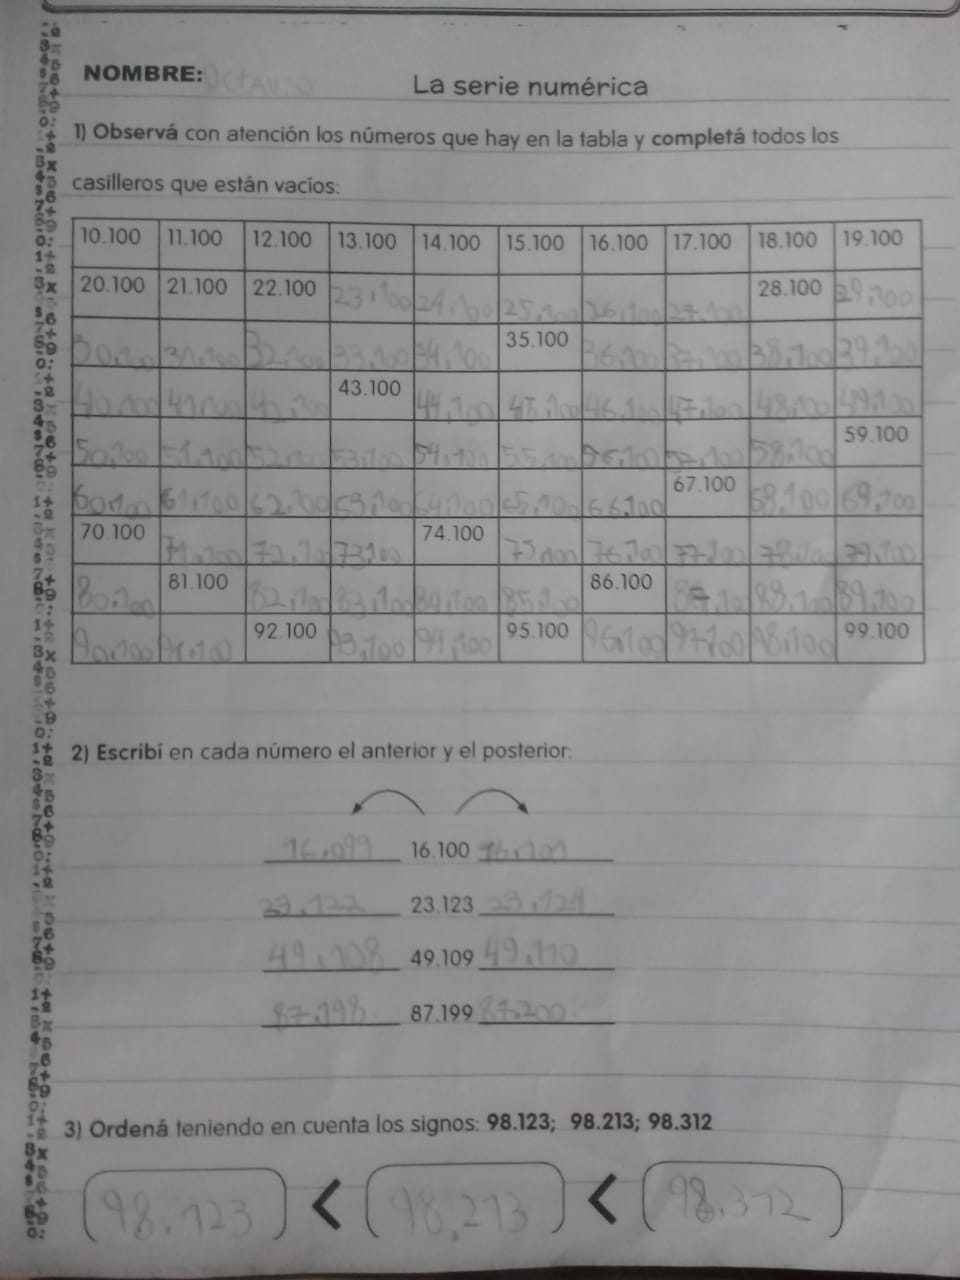 NOMBRE: Octavio
La serie numérica
1) Observá con atención los números que hay en la tabla y completá todos los
casilleros que están vacíos:
10.100 11.100 12.100 13.100 14.100 15.100 16.100 17.100 18.100 19.100
20.100 21.100 22.100 23.100 24.100 25.100 26.100 27.100 28.100 29.100
30.100 31.100 32.100 33.100 34.100 35.100 36.100 37.100 38.100 39.100
40.100 41.100 42.100 43.100 44.100 45.100 46.100 47.100 48.100 49.100
50.100 51.100 52.100 53.100 54.100 55.100 56.100 57.100 58.100 59.100
60.100 61.100 62.100 63.100 64.100 65.100 66.100 67.100 68.100 69.100
70.100 71.100 72.100 73100 74.100 75.100 76.100 77.100 78.100 79.100
80.100 81.100 82.100 83.100 84.100 85.100 86.100 88.100 89.100
90.100 91.100 92.100 93.100 94.100 95.100 96.100 97.100 98.100 99.100
2) Escribí en cada número el anterior y el posterior:
16.099 16.100 16.101
23.122 23.123 23.124
49.108 49.109 49.110
87.198 87.199 87.200
3) Ordená teniendo en cuenta los signos: 98.123; 98.213; 98.312
98.123 < 98.213 < 98.312